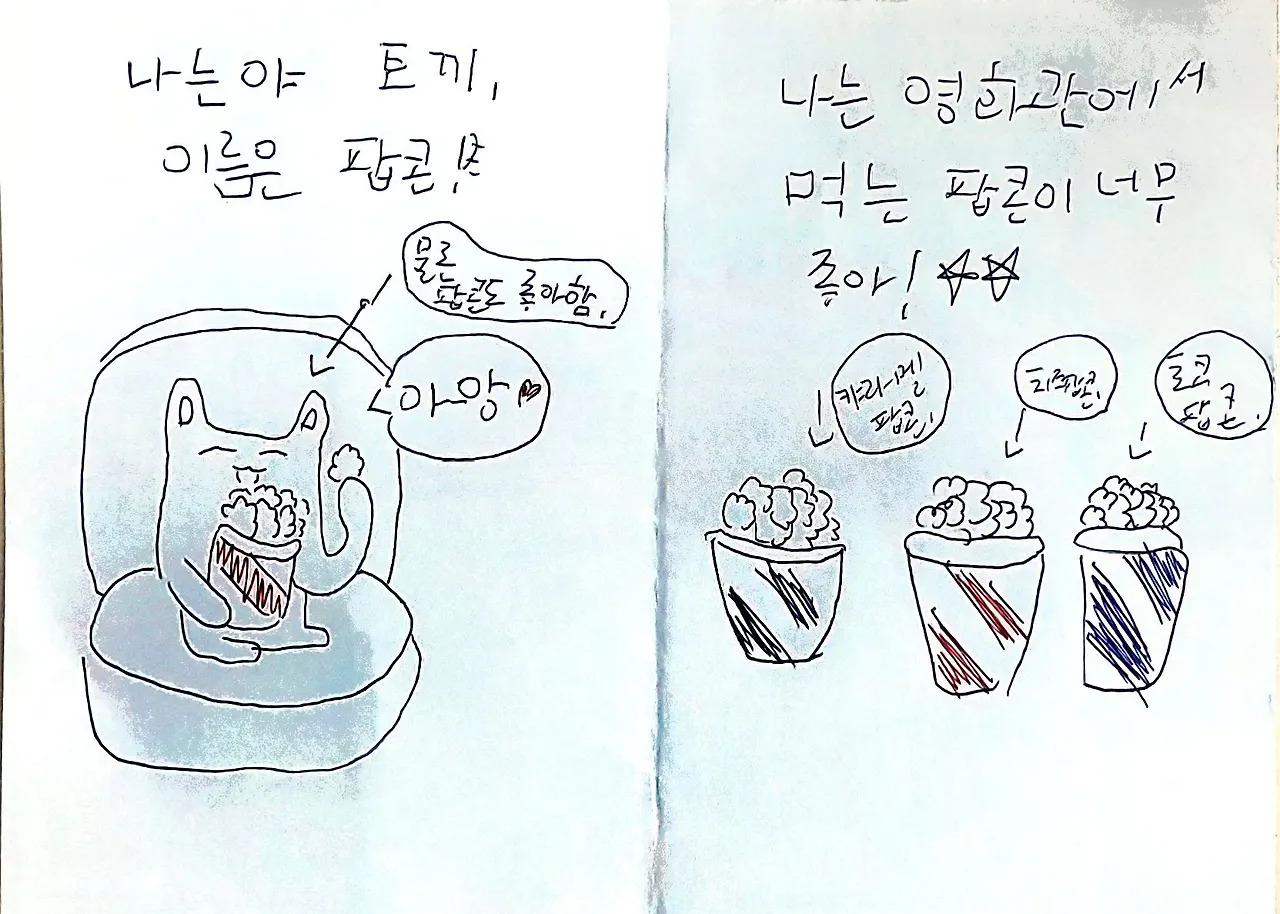 나는야 토끼,
이름은 팝콘!
물론
팝콘도 좋아함.
아~앙
나는 영화관에서
먹는 팝콘이 너무
좋아!
캬라멜
팝콘.
치즈팝콘.
초코
팝콘.